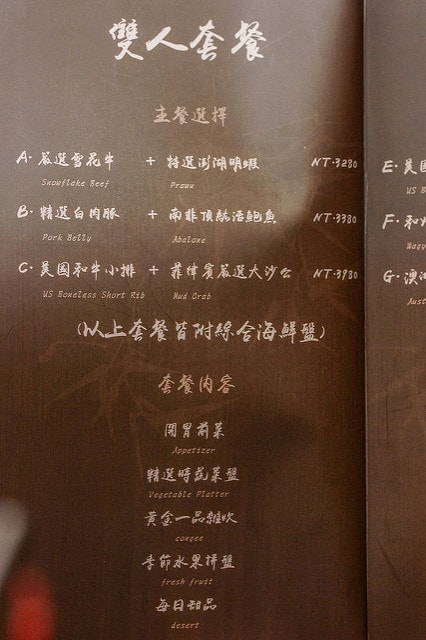 雙人套餐
主餐選擇
A. 嚴選雪花牛 + 特選澎湖明蝦 NT.3280
Snowflake Beef Prawn
B. 精選白肉豚 + 南非頂級活鮑魚 NT.3380
Pork Belly Abalone
C. 美國和牛小排 + 菲律賓嚴選大沙公 NT.3980
US Boneless Short Rib Mud Crab
(以上套餐皆附綜合海鮮盤)
套餐內容
開胃前菜
Appetizer
精選時蔬菜盤
Vegetable Platter
黃金一品雜炊
congee
季節水果拼盤
fresh fruit
每日甜品
desert
E. 美國
US B
F. 和
Wagy
G. 澳洲
Aust